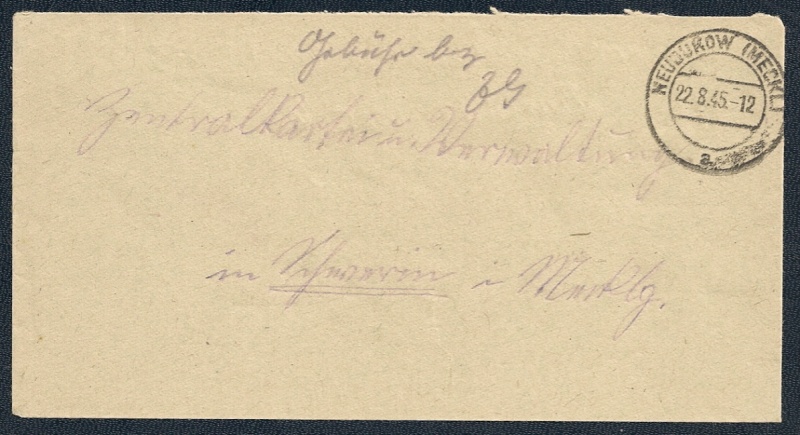 Gebühr bez
NEUBUKOW (MECKL)
22.8.45.-12
a
Zentralkartei u. Verwaltung
in Schwerin i Mecklg.